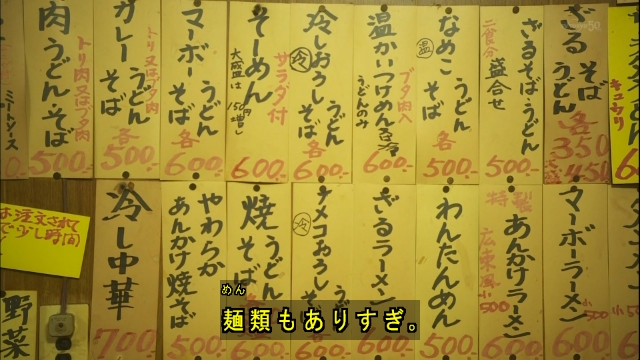 ざるそば
うどん
各350
450
ざるそば・うどん
二食分
盛合せ
500.-
なめこうどん
温
そば
500.-
温かいつけめん
ブタ肉入
うどんのみ
600.-
冷しおろしうどん
冷
そば各
600.-
そーめん
サラダ付
大盛は150円増し
600.-
マーボーうどん
そば
各
600.-
カレーうどん
トリ肉又はブタ肉
そば
各
500.-
肉うどん・そば
トリ肉又はブタ肉
500.-
ミートソース
キュウリ
マーボーラーメン
小500
特製
あんかけラーメン
広東風
小500
わんたんめん
ざるラーメン
ナメコおろしうどん
冷
そば
焼うどん
そば
やわらか
あんかけ焼そば
500.-
冷し中華
700.-
は注文されて
で少し時間
野菜
めん
麺類もありすぎ。